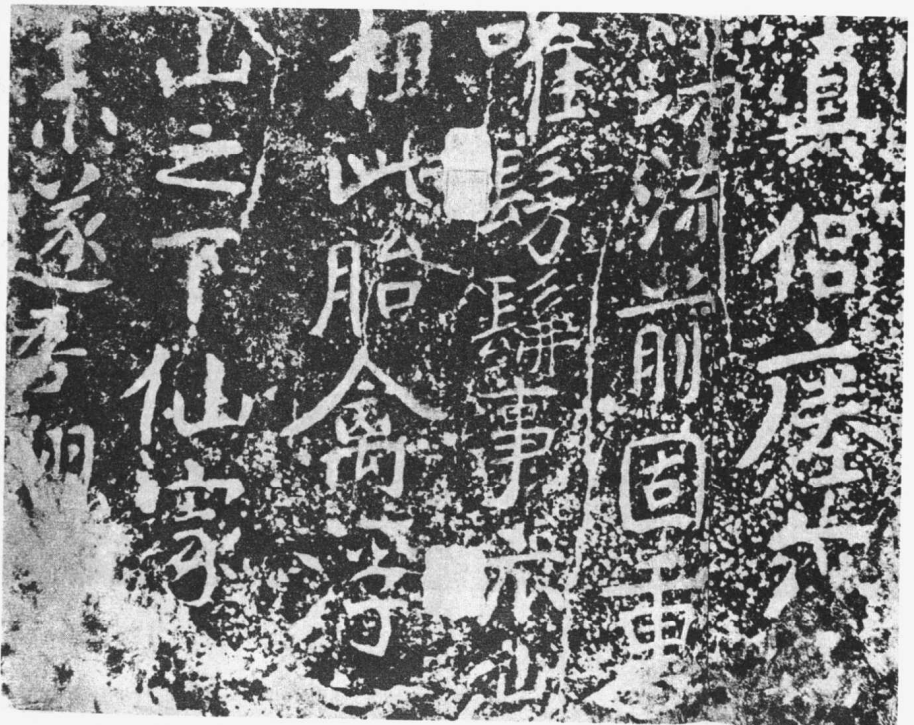 真侶瘞尒
流前固重
唯髣髴事亦
相此胎禽浮
山之下仙家
未遂吾翔